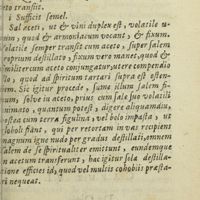 eto transit.
i Sufficit semel.
Sal aceti, ut & vini duplex est, volatile u-
num, quod & armoniacum vocant, & fixum.
Volatile semper transit cum aceto, super salem
proprium destillato, fixum vero manet, quod &
similiter cum aceto conjungatur, utere compendio
illo, quod ad spiritum tartari supra est osten-
sum. Sic igitur procede, sume illum salem fi-
xum, solve in aceto, prius cum sale suo volatili
animato, quantum potest, digere aliquamdiu,
postea cum terra figulina, vel bolo impasta, ut
globoli fiant, qui per retortam in vas recipiens
magnum igne nudo per gradus destillati, omnem
salem de se spiritualiter emittunt, eundemque
in acetum transferunt, hac igitur sola destilla-
tione efficies id, quod vel multis cohobiis præsta-
ri nequeat.